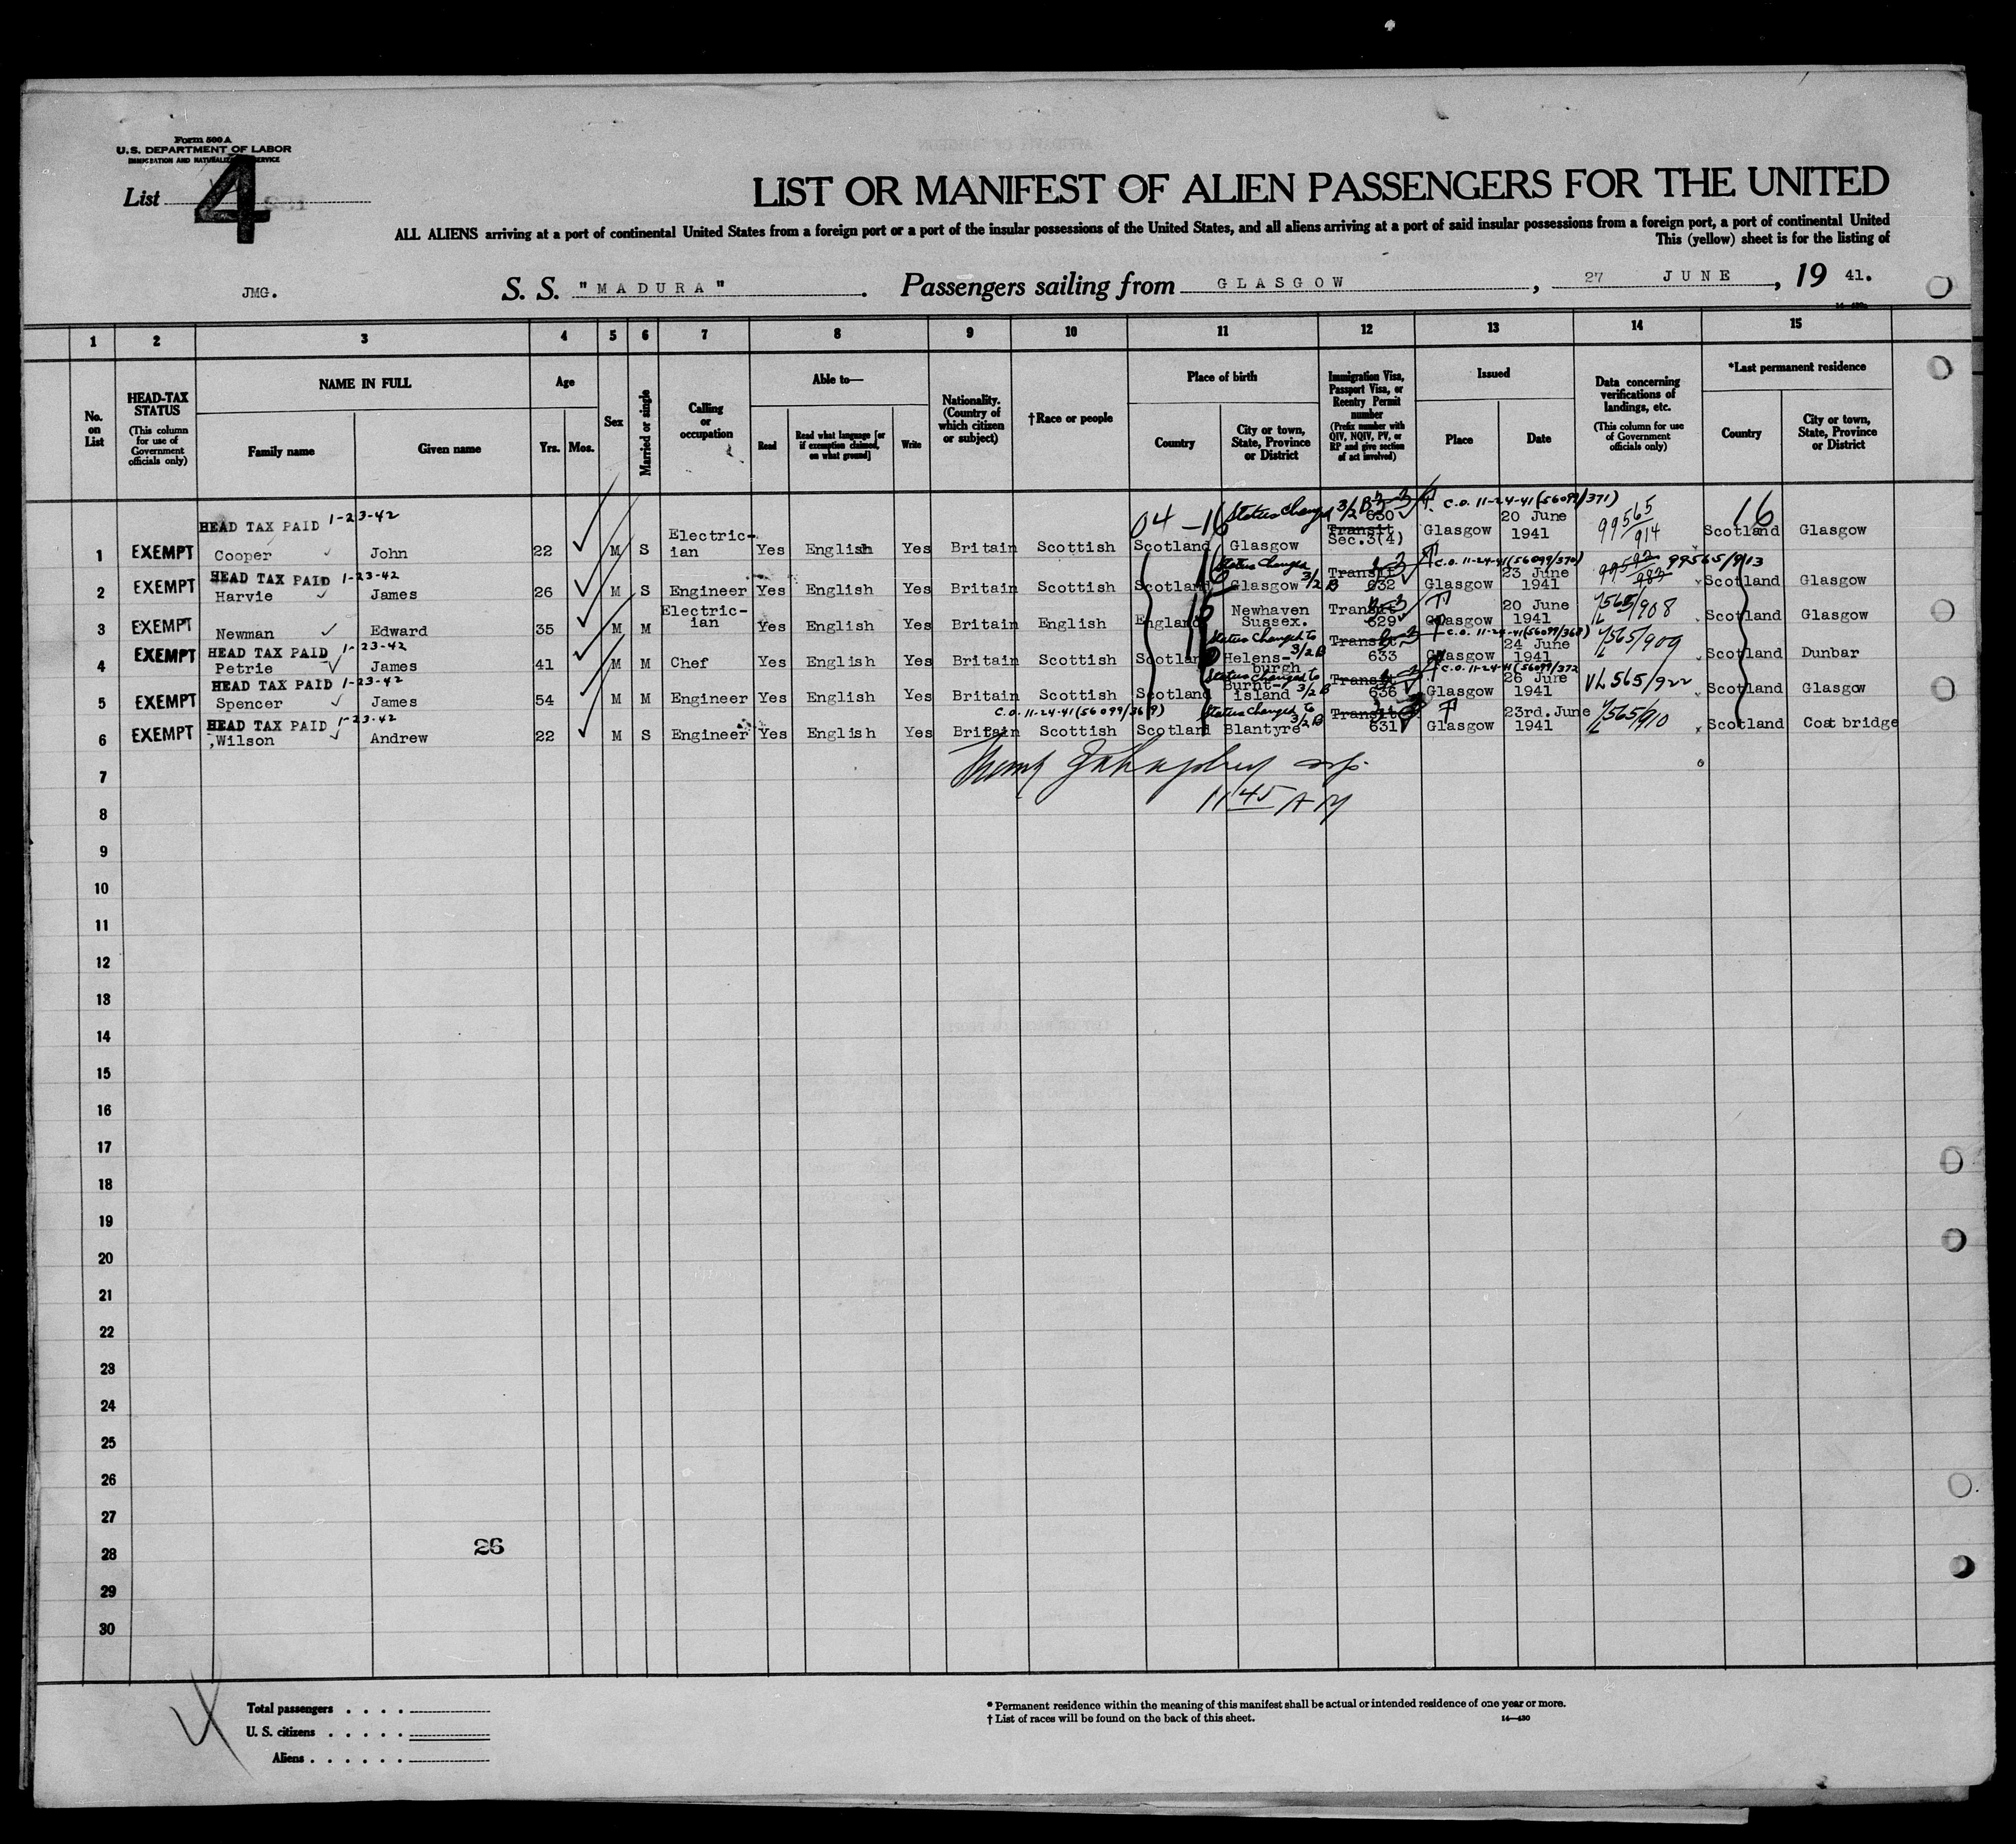 Form 500 A
U.S. DEPARTMENT OF LABOR
IMMIGRATION AND NATURALIZATION SERVICE
List 4
LIST OR MANIFEST OF ALIEN PASSENGERS FOR THE UNITED
ALL ALIENS arriving at a port of continental United States from a foreign port or a port of the insular possessions of the United States, and all aliens arriving at a port of said insular possessions from a foreign port, a port of continental United
This (yellow) sheet is for the listing of
JMG. S. S. "MADURA" . Passengers sailing from GLASGOW , 27 JUNE , 19 41.
1 2 3 4 5 6 7 8 9 10 11 12 13 14 15
No. on List
HEAD-TAX STATUS (This column for use of Government officials only)
NAME IN FULL
Family name Given name
Age
Yrs. Mos.
Sex
Married or single
Calling or occupation
Able to—
Read Read what language [or if exemption claimed, on what ground] Write
Nationality. (Country of which citizen or subject)
†Race or people
Place of birth
Country City or town, State, Province or District
Immigration Visa, Passport Visa, or Reentry Permit number (Prefix number with QIV, NQIV, PV, or RP and give section of act involved)
Issued
Place Date
Data concerning verifications of landings, etc. (This column for use of Government officials only)
*Last permanent residence
Country City or town, State, Province or District
HEAD TAX PAID 1-23-42 04-16 Status Changed 3/2 B C.O. 11-24-41 (56099/371) 16
1 EXEMPT Cooper John 22 M S Electric-ian Yes English Yes Britain Scottish Scotland Glasgow 630 Transit Sec.3(4) Glasgow 20 June 1941 99565/914 Scotland Glasgow
HEAD TAX PAID 1-23-42 Status Changed 3/2 B C.O. 11-24-41 (56099/370)
2 EXEMPT Harvie James 26 M S Engineer Yes English Yes Britain Scottish Scotland Glasgow Transit 632 Glasgow 23 June 1941 99565/913 Scotland Glasgow
3 EXEMPT Newman Edward 35 M M Electric-ian Yes English Yes Britain English England Newhaven Sussex. Transit 629 Glasgow 20 June 1941 565/908 Scotland Glasgow
HEAD TAX PAID 1-23-42 Status Changed to 3/2 B C.O. 11-24-41 (56099/368)
4 EXEMPT Petrie James 41 M M Chef Yes English Yes Britain Scottish Scotland Helens-burgh Transit 633 Glasgow 24 June 1941 565/909 Scotland Dunbar
HEAD TAX PAID 1-23-42 Status Changed to 3/2 B C.O. 11-24-41 (56099/372
5 EXEMPT Spencer James 54 M M Engineer Yes English Yes Britain Scottish Scotland Burnt-island Transit 636 Glasgow 26 June 1941 VL 565/922 Scotland Glasgow
HEAD TAX PAID 1-23-42 C.O. 11-24-41 (56099/369) Status Changed to 3/2 B
6 EXEMPT Wilson Andrew 22 M S Engineer Yes English Yes Britain Scottish Scotland Blantyre Transit 631 Glasgow 23rd.June 1941 565/910 Scotland Coatbridge
7
11 45 AM
8
9
10
11
12
13
14
15
16
17
18
19
20
21
22
23
24
25
26
27
28 26
29
30
Total passengers . . . .
U. S. citizens . . . . .
Aliens . . . . . .
* Permanent residence within the meaning of this manifest shall be actual or intended residence of one year or more.
† List of races will be found on the back of this sheet. 14—430